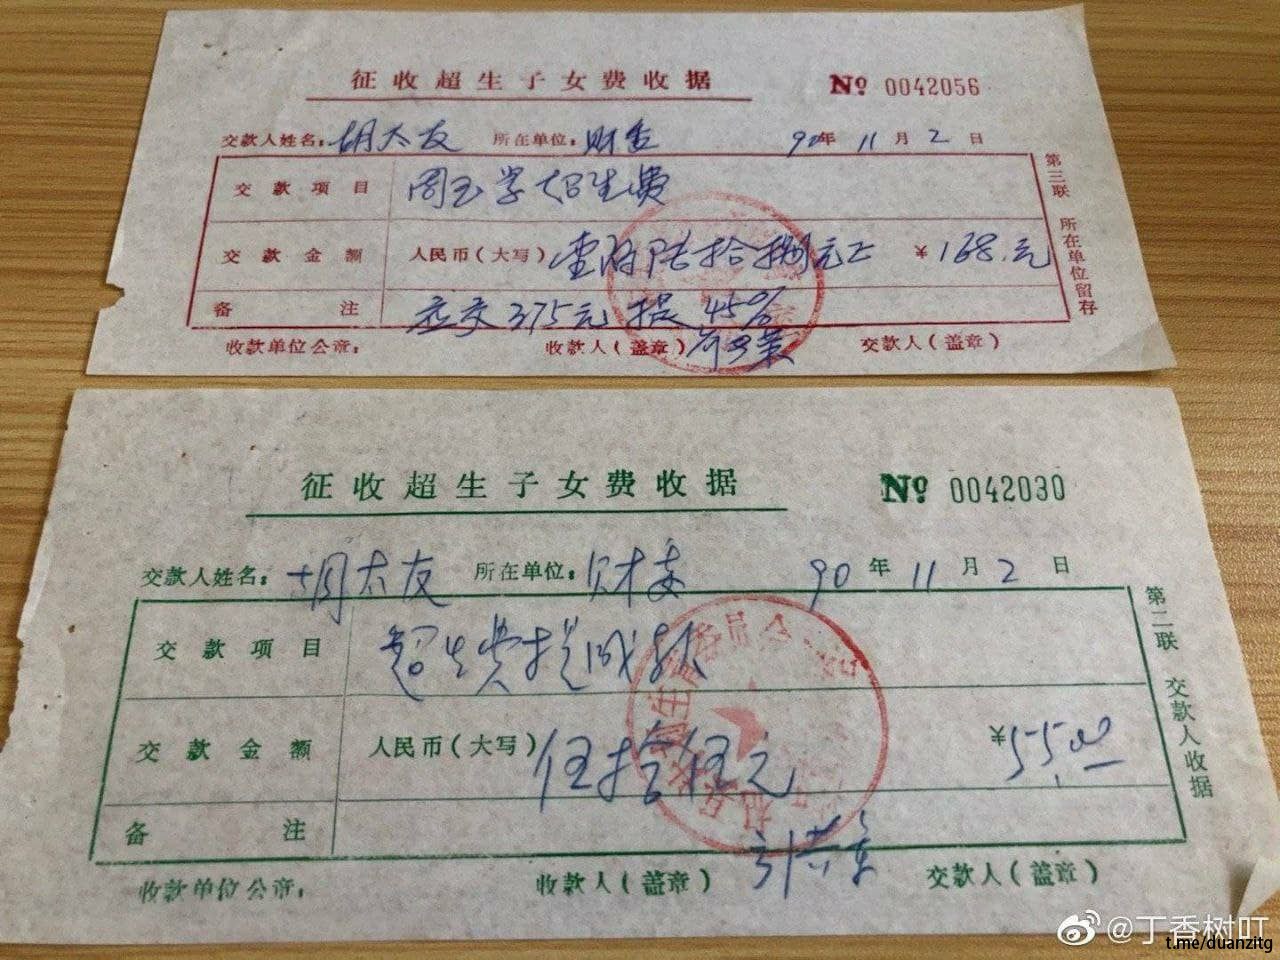 征收超生子女费收据 № 0042056
交款人姓名：胡太友 所在单位：财 90年 11月 2日
交款项目 周玉学超生费
交款金额 人民币（大写）壹佰陆拾捌元正 ￥168.元
备注 应交375元 提 45%
收款单位公章： 收款人（盖章） 交款人（盖章）
第三联 所在单位留存
征收超生子女费收据 № 0042030
交款人姓名：胡太友 所在单位：财委 90年 11月 2日
交款项目 超生费提成款
交款金额 人民币（大写）伍拾伍元 ￥55.00
备注
收款单位公章： 收款人（盖章） 交款人（盖章）
第二联 交款人收据
@丁香树叮
t.me/duanzitg